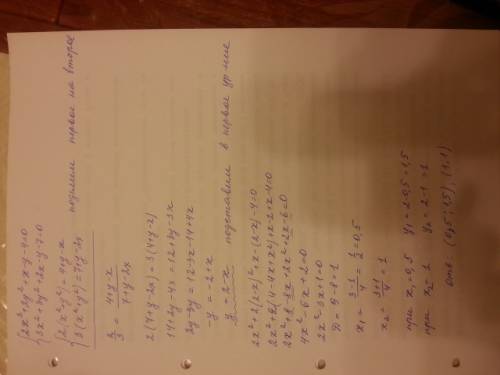 {2x²+2y²+x-y-4=0
{3x²+3y²+2x-y-7=0
{2(x²+y²)=4+y-x
{3(x²+y²)=7+y-2x поделим первое на второе
2/3 = (4+y-x)/(7+y-2x)
2(7+y-2x)=3(4+y-x)
14+2y-4x=12+3y-3x
2y-3y=12-3x-14+4x
-y=-2+x
y=2-x подставим в первое ур-ние
2x²+2(2-x)²+x-(2-x)-4=0
2x²+2(4-4x+x²)+x-2+x-4=0
2x²+8-8x+2x²+2x-6=0
4x²-6x+2=0
2x²-3x+1=0
D=9-8=1
x₁=(3-1)/4=1/2=0,5
x₂=(3+1)/4=1
при x₁=0,5 y₁=2-0,5=1,5
при x₂=1 y₂=2-1=1
отв: (0,5; 1,5), (1;1)